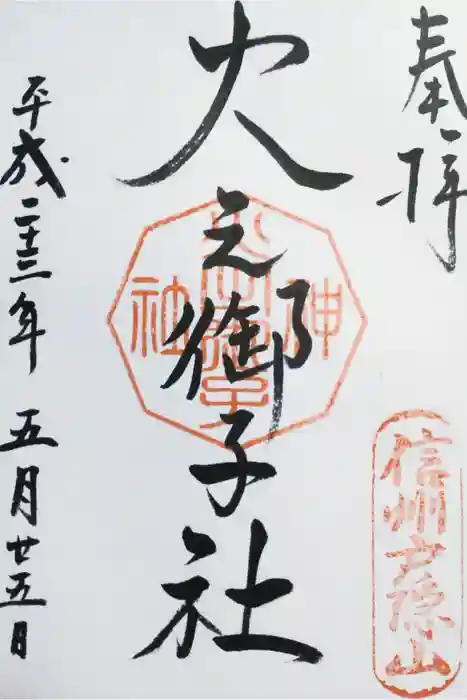 奉拝
信州戸隠山
火之御子社
神
社
平成二十三年 五月廿五日